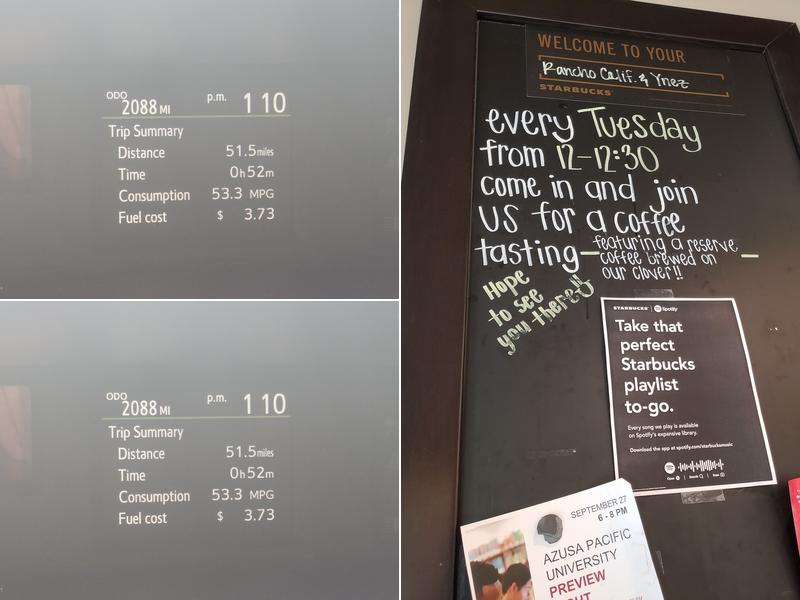 ODO
2088 MI p.m. 1 10
Trip Summary
Distance 51.5 miles
Time 0h 52m
Consumption 53.3 MPG
Fuel cost $ 3.73
ODO
2088 MI p.m. 1 10
Trip Summary
Distance 51.5 miles
Time 0h 52m
Consumption 53.3 MPG
Fuel cost $ 3.73
WELCOME TO YOUR
Rancho Calif. & Ynez
STARBUCKS
every Tuesday
from 12-12:30
come in and join
us for a coffee
tasting— featuring a reserve
coffee brewed on —
our clover!!
Hope
to see
you there!!
STARBUCKS Spotify
Take that
perfect
Starbucks
playlist
to-go.
Every song we play is available
on Spotify's expansive library.
Download the app at spotify.com/starbucksmusic
Open Search Scan
SEPTEMBER 27
6 - 8 PM
AZUSA PACIFIC
UNIVERSITY
PREVIEW